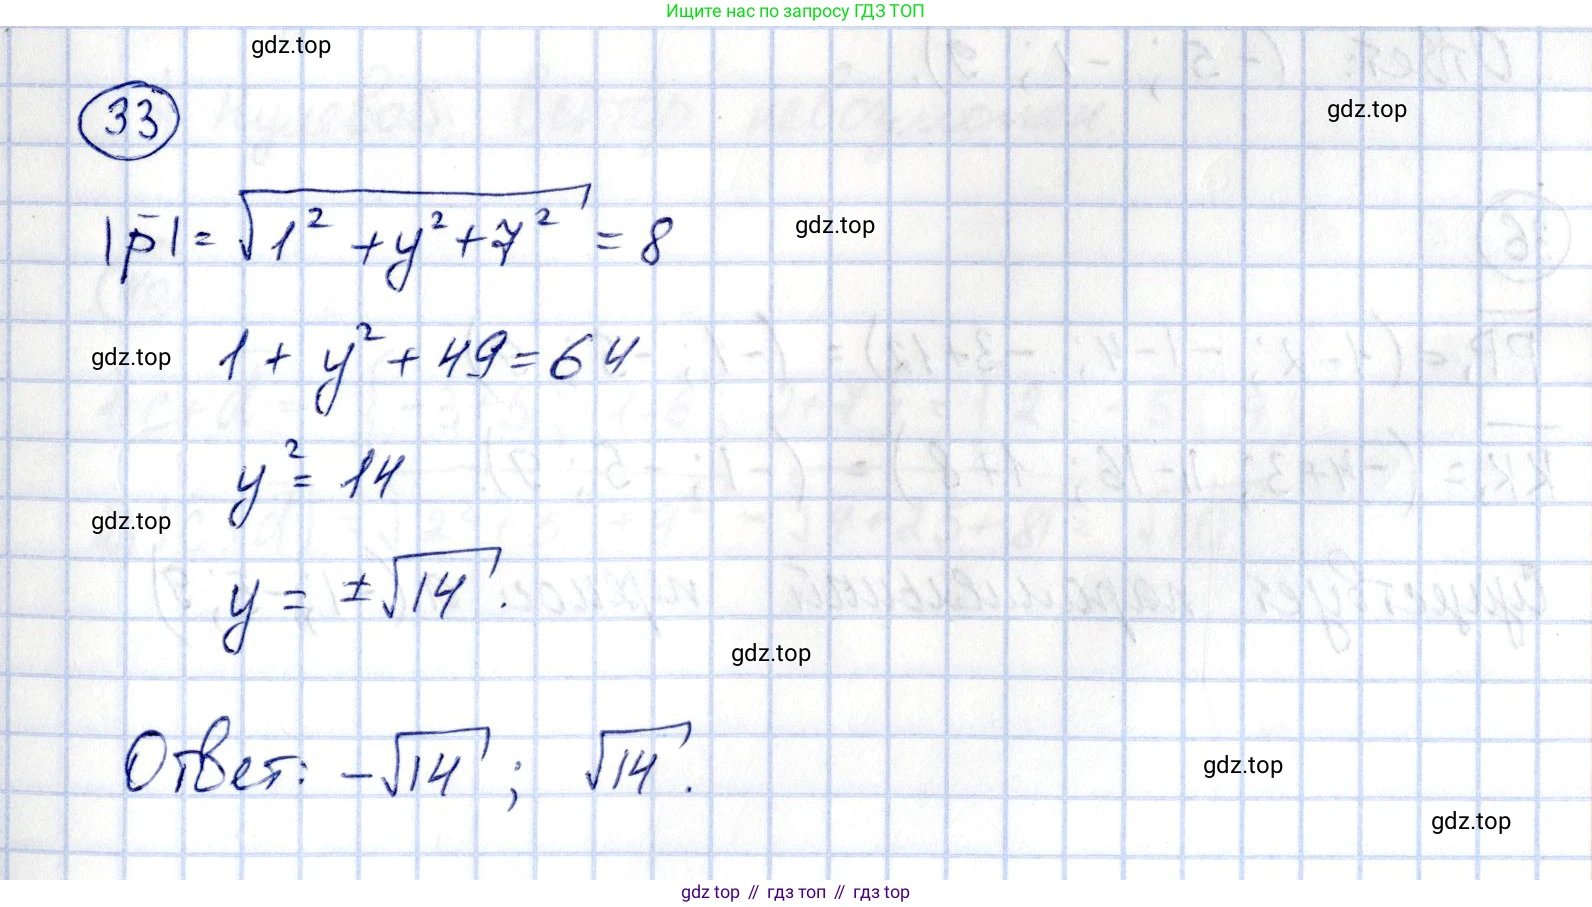 Ищите нас по запросу ГДЗ ТОП
gdz.top
33
gdz.top
|p̅| = √(1² + y² + 7²) = 8
gdz.top
1 + y² + 49 = 64
gdz.top
y² = 14
gdz.top
y = ±√14.
gdz.top
Ответ: -√14; √14.
gdz.top
gdz.top
gdz top // гдз топ // гдз top